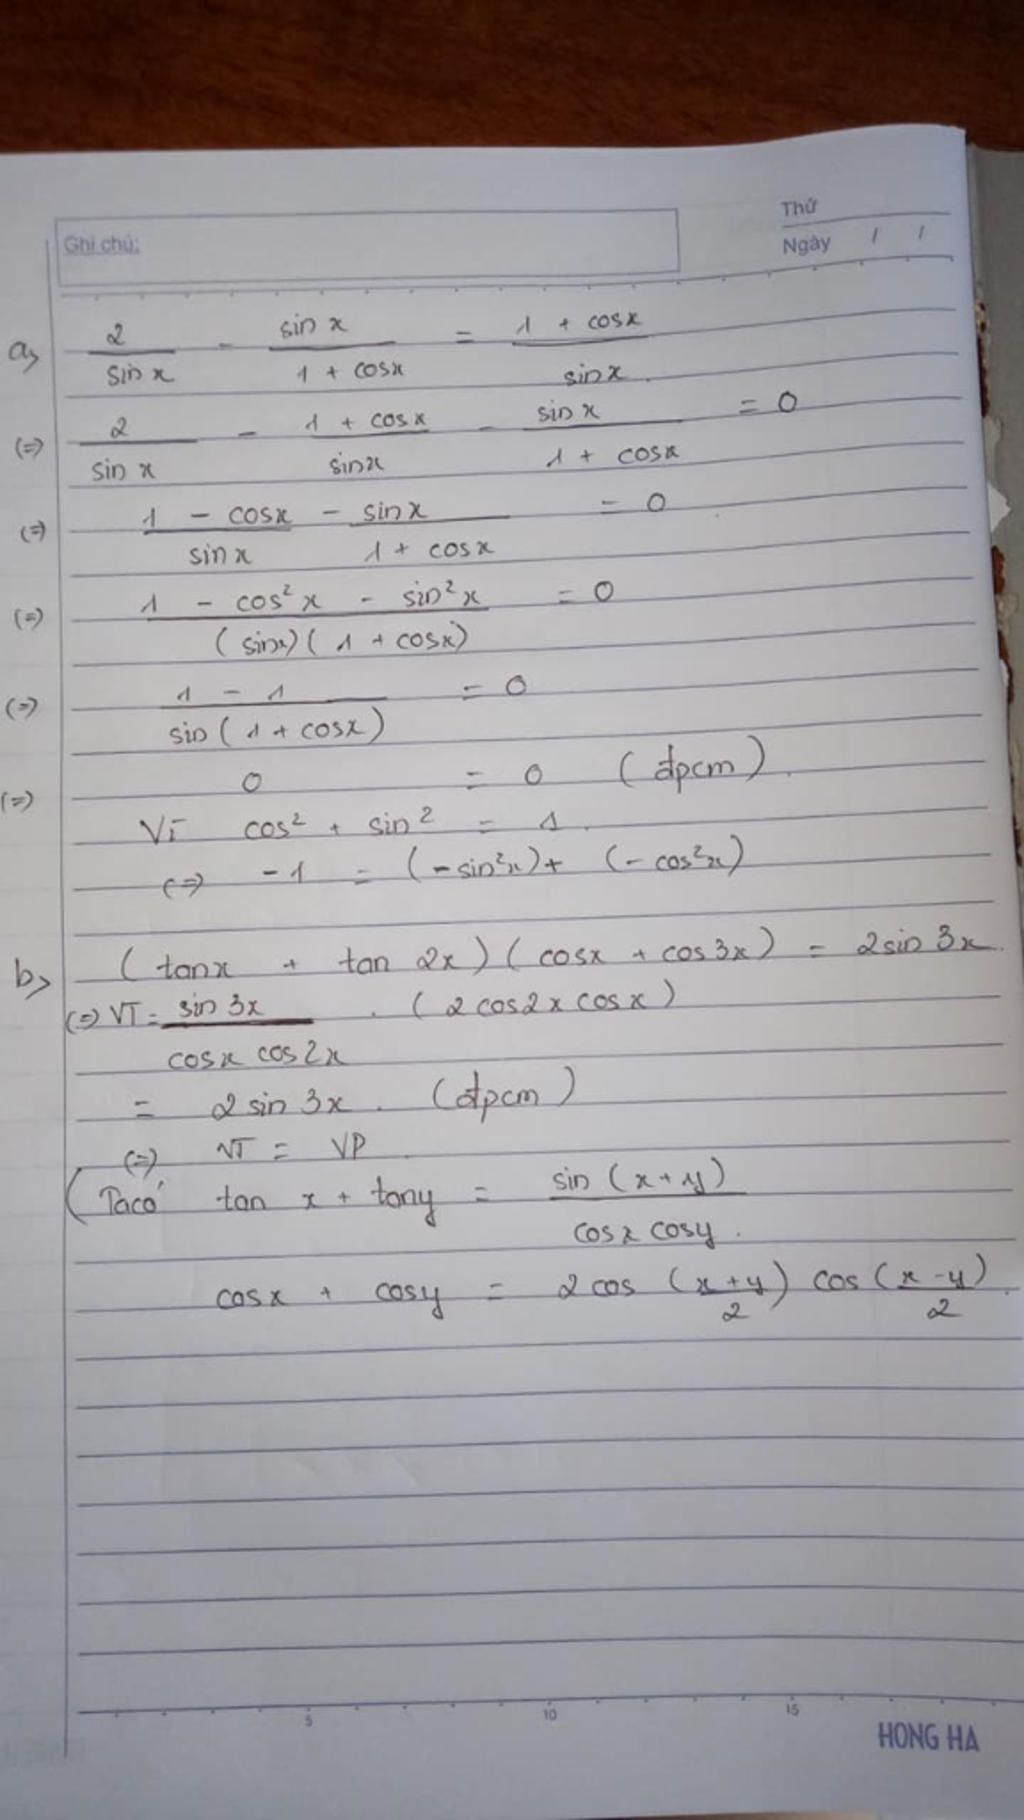 Thứ
Ghi chú:
Ngày / /
a, 2/sin x - sin x/(1 + cosx) = (1 + cosx)/sin x.
(=) 2/sin x - (1 + cosx)/sinx - sin x/(1 + cosx) = 0
(=) (1 - cosx)/sin x - sin x/(1 + cosx) = 0
(=) (1 - cos²x - sin²x)/((sinx)(1 + cosx)) = 0
(=) (1 - 1)/(sin(1 + cosx)) = 0
(=) 0 = 0 (đpcm).
Vì cos² + sin² = 1.
(=) -1 = (-sin²x) + (-cos²x)
b, (tanx + tan 2x)(cosx + cos3x) = 2sin 3x.
(=) VT = sin 3x/(cosx cos2x) . (2cos2x cosx)
= 2 sin 3x. (đpcm)
(=) VT = VP
(Taco' tan x + tany = sin (x+y)/(cosx cosy).
cosx + cosy = 2 cos ((x+y)/2) cos ((x-y)/2).
5 10 15
HONG HA